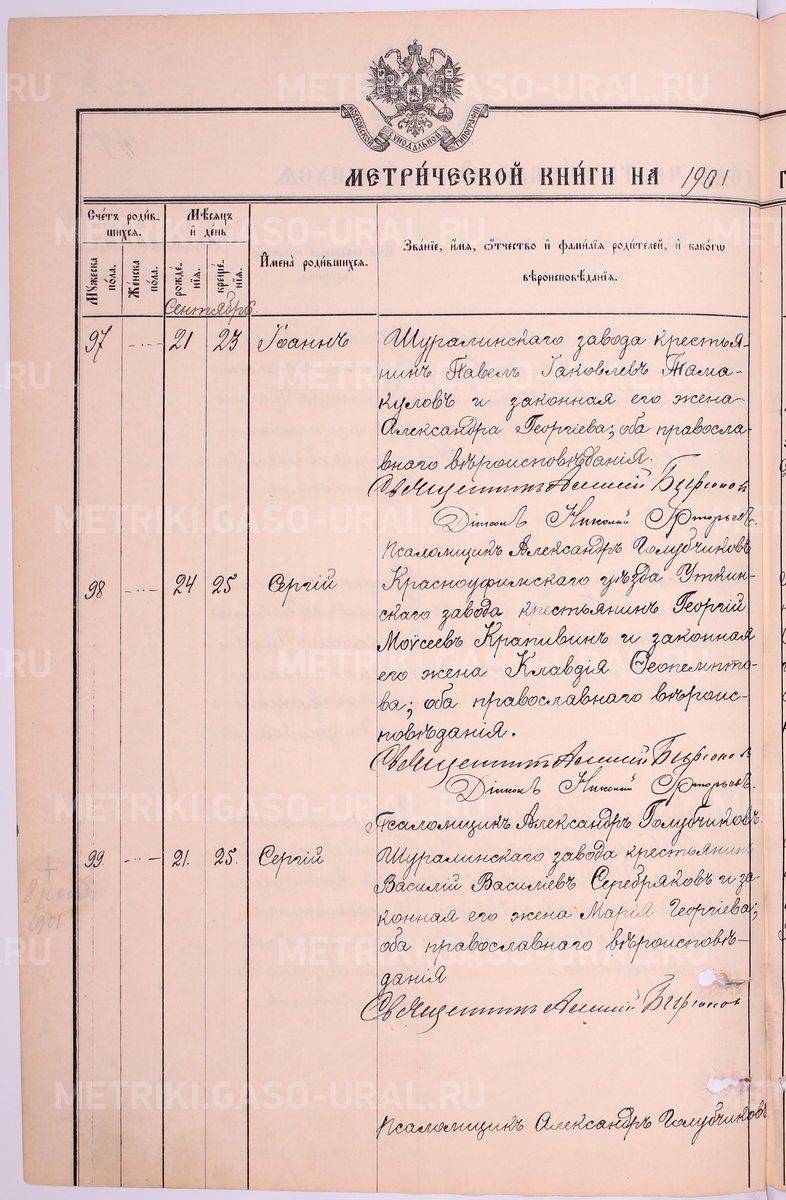 МОСКОВСКОЙ СѴНОДАЛЬНОЙ ТИПОГРАФІИ
МЕТРИ́ЧЕСКОЙ КНИ́ГИ НА 1901
Счетъ роди́в-
шихся.
Мѣсяцъ
и де́нь
Мꙋжеска
по́ла.
Же́нска
по́ла.
рожде́-
нїя.
креще́-
нїя.
Имена̀ роди́вшихся.
Зва́нїе, и́мя, ѻ҆́тчество и фами́лїя роди́телей, и како́гѡ
вѣроисповѣ́данїя.
Сентябрь
97 -··- 21 23 Іоаннъ
Шуралинскаго завода крестья-
нинъ Павелъ Іаковлевъ Тама-
куловъ и законная его жена
Александра Георгіева; оба правосла-
внаго вѣроисповѣданія.
Священникъ Алексій
Діаконъ Николай
Псаломщикъ Александръ Голубчиковъ
98 -··- 24 25 Сергій
Красноуфимскаго уѣзда Уткин-
скаго завода крестьянинъ Георгій
Моѵсеевъ Крапивинъ и законная
его жена Клавдія Ѳеопемпто-
ва; оба православнаго вѣроис-
повѣданія.
Священникъ Алексій
Діаконъ Николай
Псаломщикъ Александръ Голубчиковъ
99 -··- 21. 25. Сергій
Шуралинскаго завода крестьянинъ
Василій Василіевъ Серебряковъ и за-
конная его жена Марія Георгіева;
оба православнаго вѣроисповѣ-
данія
Священникъ Алексій
Псаломщикъ Александръ Голубчиковъ
†
8
1901
METRIKI.GASO-URAL.RU